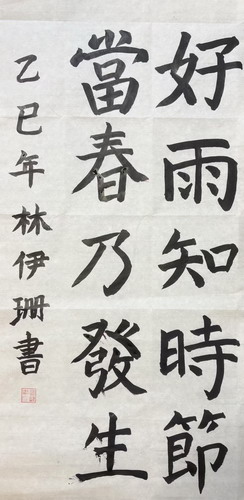 好雨知時節
當春乃發生
乙巳年林伊珊書